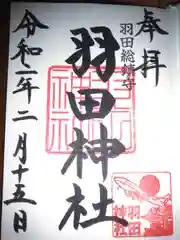 奉拝
羽田総鎮守
羽田神社
令和二年二月十五日
羽田神社